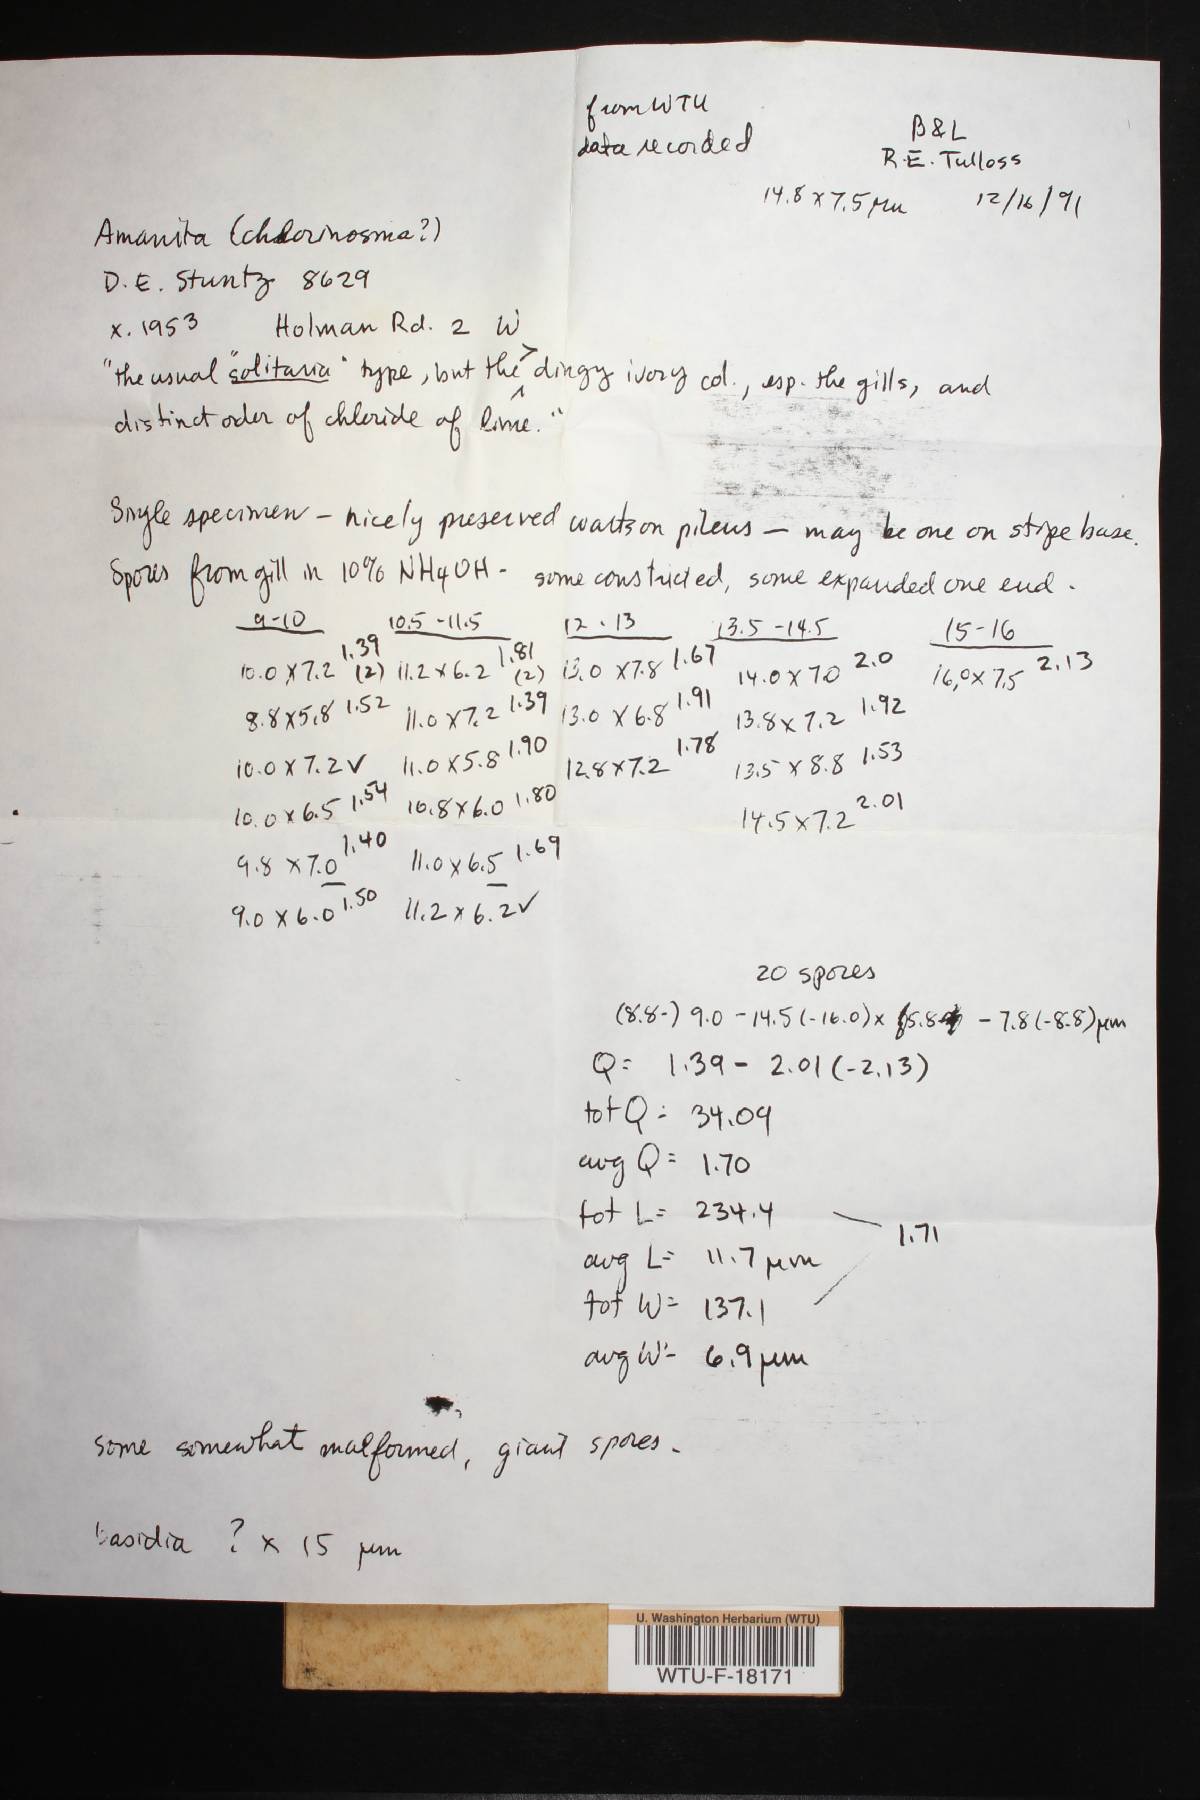 from WTU
data recorded
B&L
R.E. Tulloss
14.8 x 7.5 μm 12/16/91
Amanita (chlorinosma?)
D.E. Stuntz 8629
x. 1953 Holman Rd. 2 W
"the usual "solitaria" type, but the > dingy ivory col., esp. the gills, and
distinct odor of chloride of lime."
Single specimen – nicely preserved warts on pileus – may be one on stipe base.
Spores from gill in 10% NH4OH - some constricted, some expanded one end.
9-10 10.5-11.5 12-13 13.5-14.5 15-16
10.0 x 7.2 1.39 (2) 11.2 x 6.2 1.81 (2) 13.0 x 7.8 1.67 14.0 x 7.0 2.0 16.0 x 7.5 2.13
8.8 x 5.8 1.52 11.0 x 7.2 1.39 13.0 x 6.8 1.91 13.8 x 7.2 1.92
10.0 x 7.2 ✓ 11.0 x 5.8 1.90 12.8 x 7.2 1.78 13.5 x 8.8 1.53
10.0 x 6.5 1.54 10.8 x 6.0 1.80 14.5 x 7.2 2.01
9.8 x 7.0 1.40 11.0 x 6.5 1.69
9.0 x 6.0 1.50 11.2 x 6.2 ✓
20 spores
(8.8-) 9.0 - 14.5 (-16.0) x 5.8 - 7.8 (-8.8) μm
Q = 1.39 - 2.01 (-2.13)
tot Q = 34.09
avg Q = 1.70
tot L = 234.4
1.71
avg L = 11.7 μm
tot W = 137.1
avg W = 6.9 μm
some somewhat malformed, giant spores.
basidia ? x 15 μm
U. Washington Herbarium (WTU)
WTU-F-18171